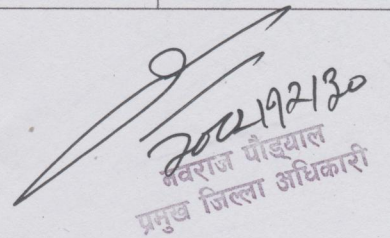 २०८२।१२।३०
नवराज पौड्याल
प्रमुख जिल्ला अधिकारी